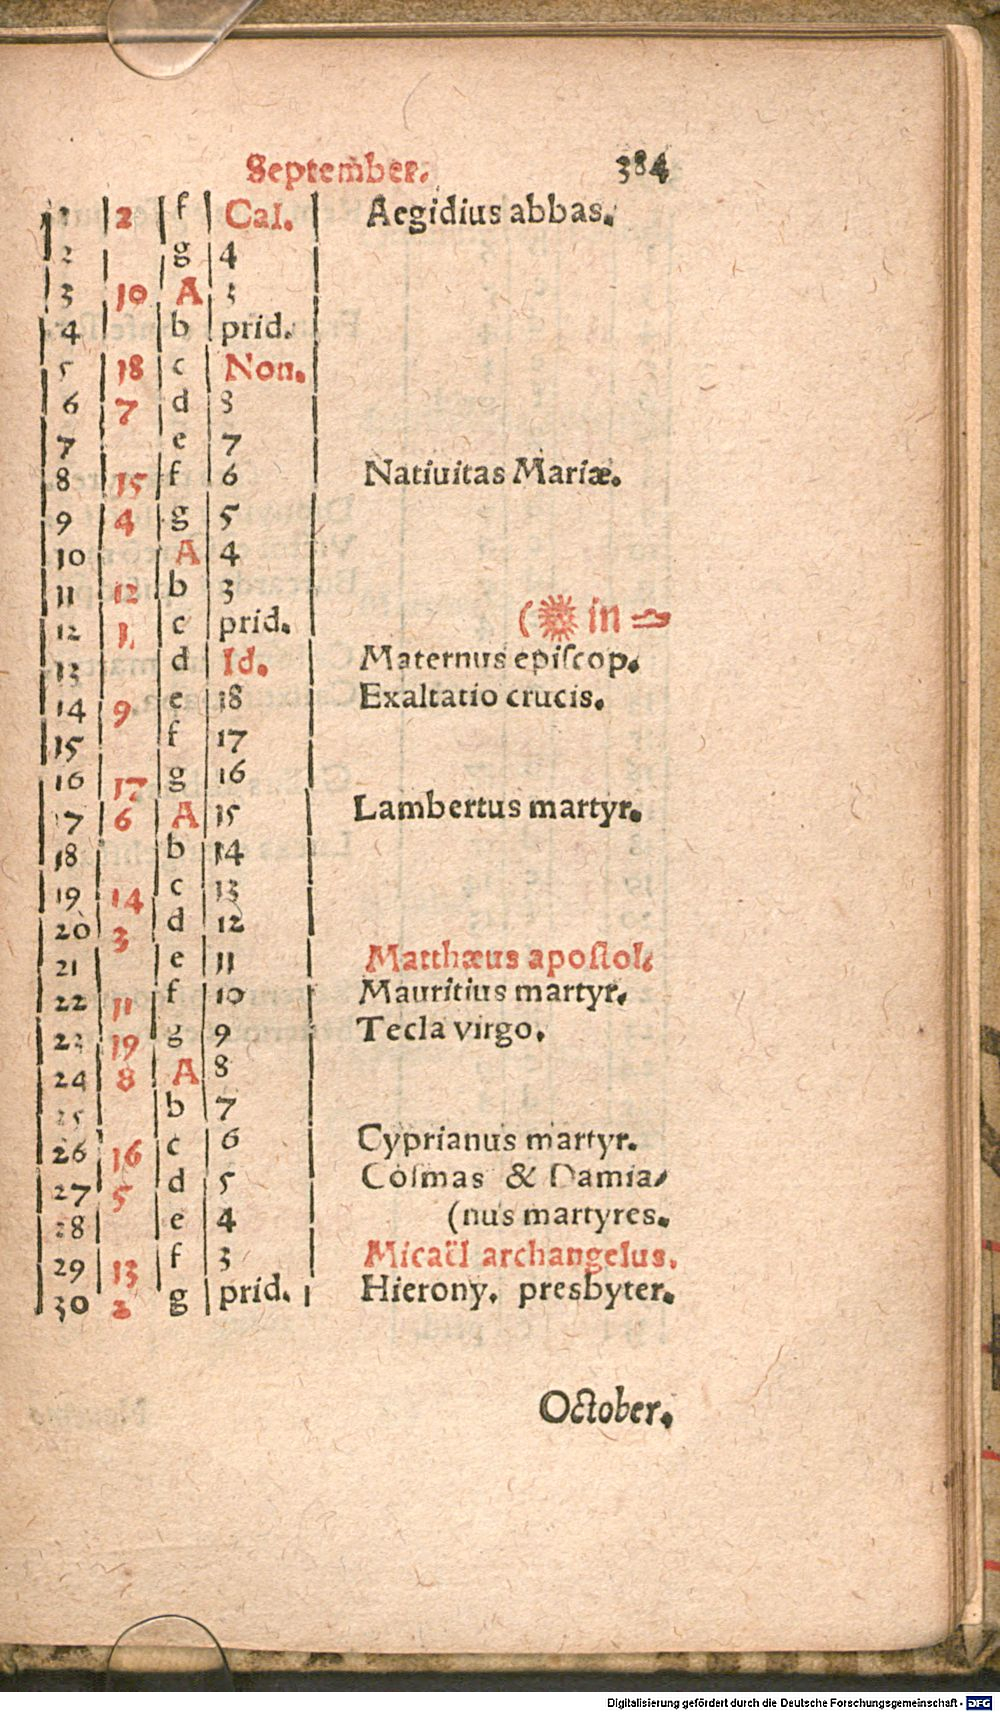 September. 384
1 2 f Cal. Aegidius abbas.
2 g 4
3 10 A 3
4 b prid.
5 18 c Non.
6 7 d 8
7 e 7
8 15 f 6 Natiuitas Mariæ.
9 4 g 5
10 A 4
11 12 b 3
12 1, c prid. (☉ in ♎
13 d Id. Maternus epiſcop.
14 9 e 18 Exaltatio crucis.
15 f 17
16 17 g 16
17 6 A 15 Lambertus martyr.
18 b 14
19 14 c 13
20 3 d 12
21 e 11 Matthæus apoſtol.
22 11 f 10 Mauritius martyr.
23 19 g 9 Tecla virgo.
24 8 A 8
25 b 7
26 16 c 6 Cyprianus martyr.
27 5 d 5 Coſmas & Damia⸗
28 e 4 (nus martyres.
29 13 f 3 Micaël archangelus.
30 2 g prid. Hierony. presbyter.
October.
Digitalisierung gefördert durch die Deutsche Forschungsgemeinschaft - DFG